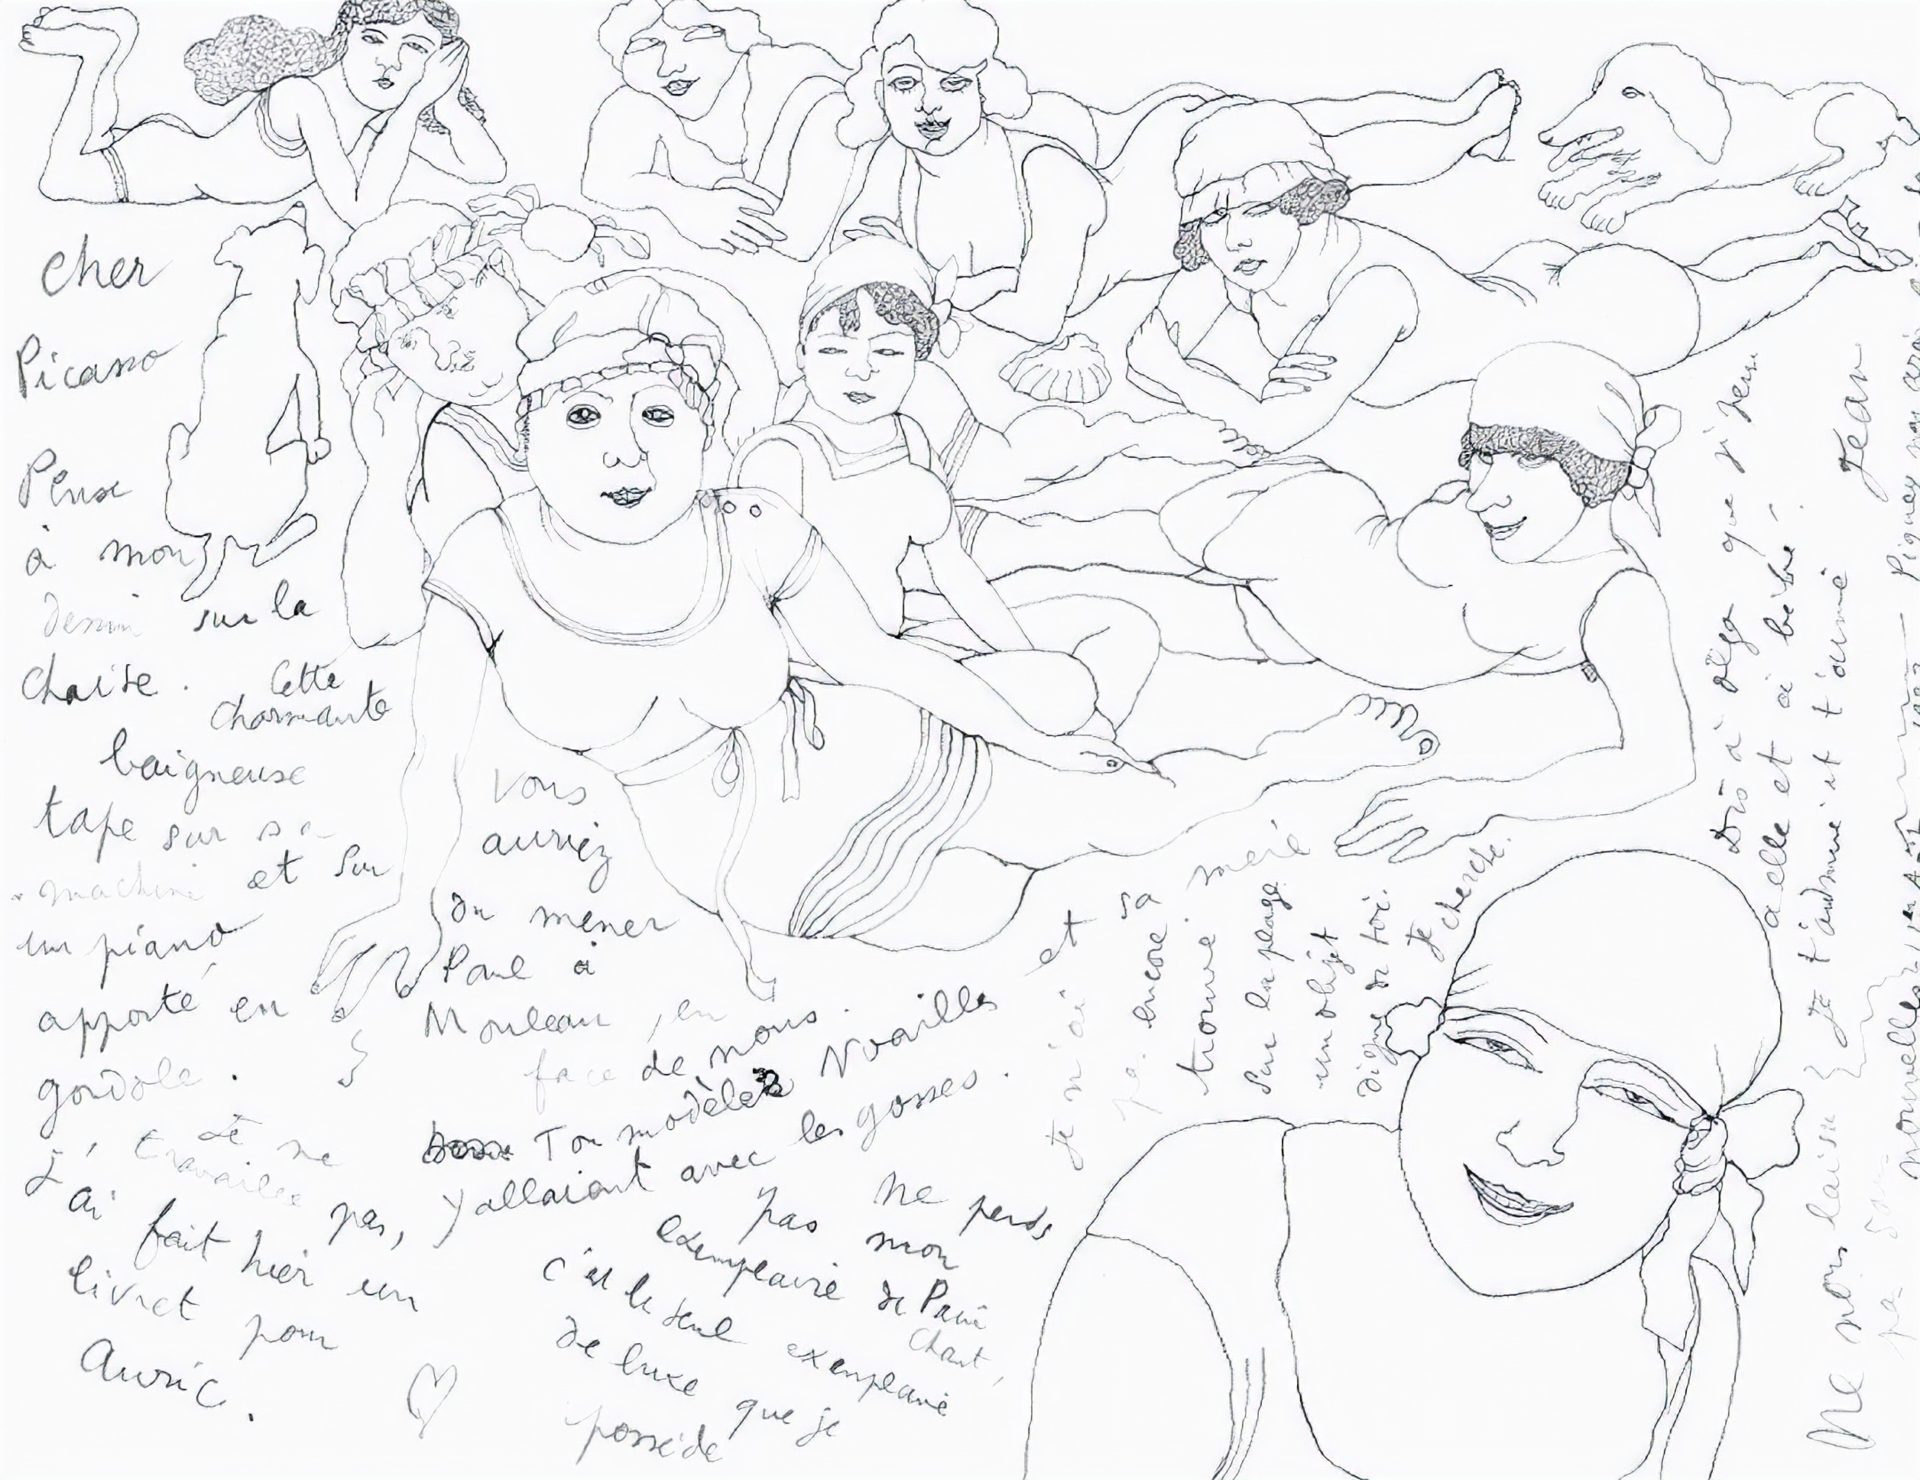 cher
Picasso
Pense
à mon
dessin sur la
chaise. Cette
charmante
baigneuse
tape sur sa
machine et sur
un piano
apporté en
gondole.
Je ne
travaille pas,
J'ai fait hier un
livret pour
Auric.
Vous
auriez
du mener
Paul à
Moulleau, en
face de nous.
Ton modèle Noailles et
y allaient avec les gosses.
Ne perds
pas mon
exemplaire de Plain
Chant,
c'est le seul exemplaire
de luxe que je
possède
Je n'ai
pas encore
trouvé
sur la plage
un objet
digne de toi.
Je cherche.
Dis à Olga que j'
à elle et à bébé.
Je t'admire et t'aime
Jean
Ne nous laisse
pas sans
nouvelles
Piquey par